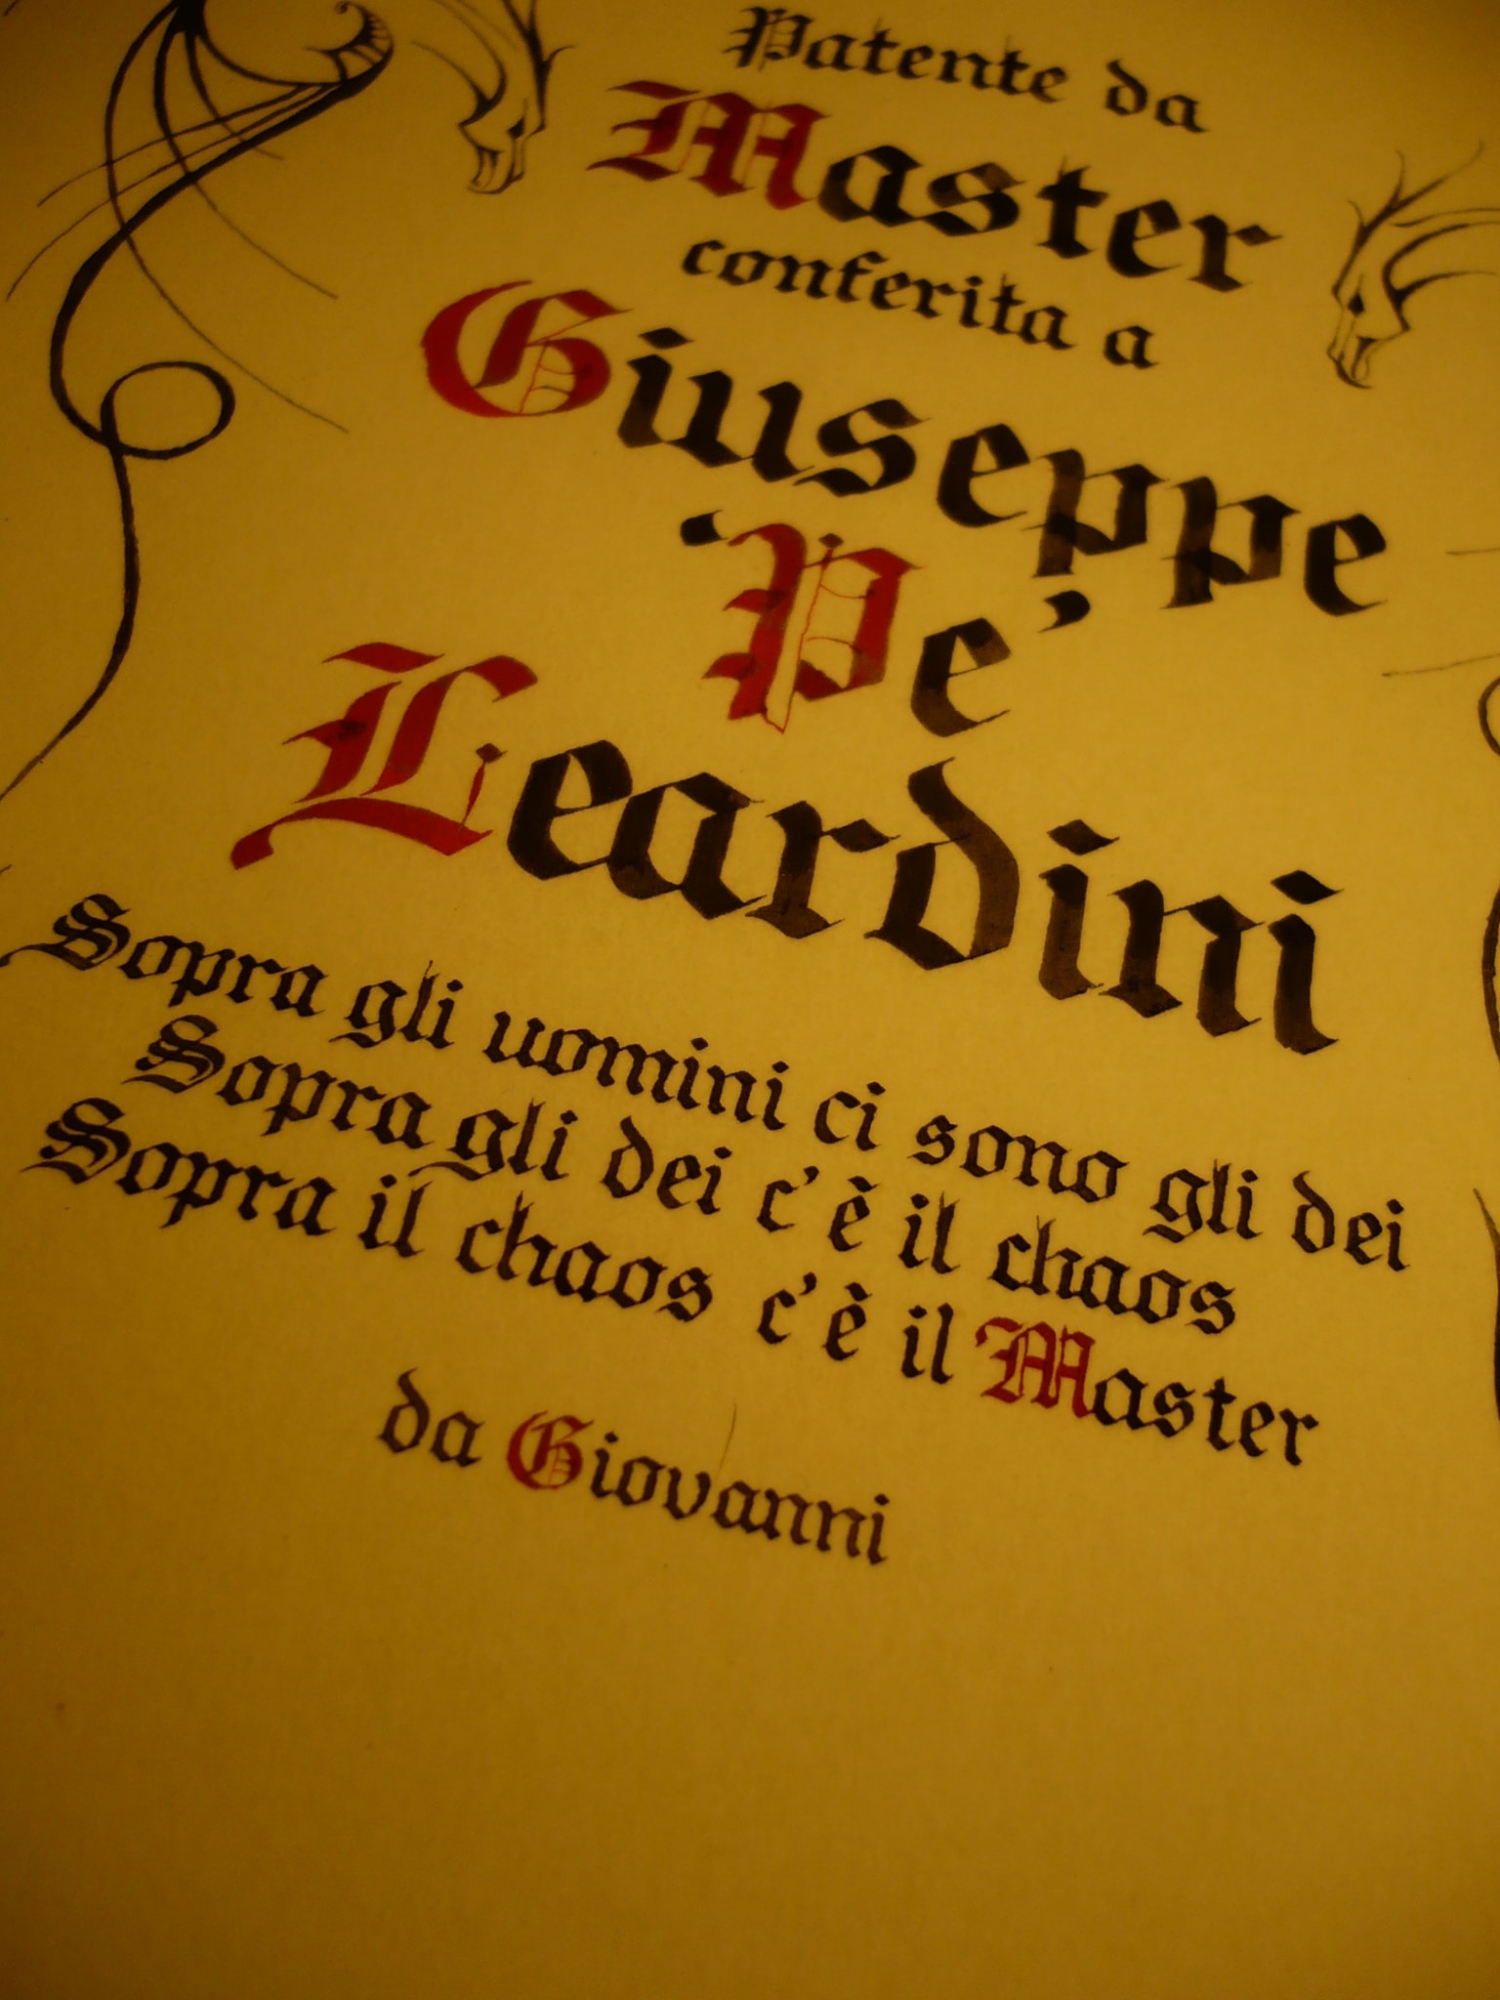 Patente da
Master
conferita a
Giuseppe
‘Pe’
Leardini
Sopra gli uomini ci sono gli dei
Sopra gli dei c’è il chaos
Sopra il chaos c’è il Master
da Giovanni